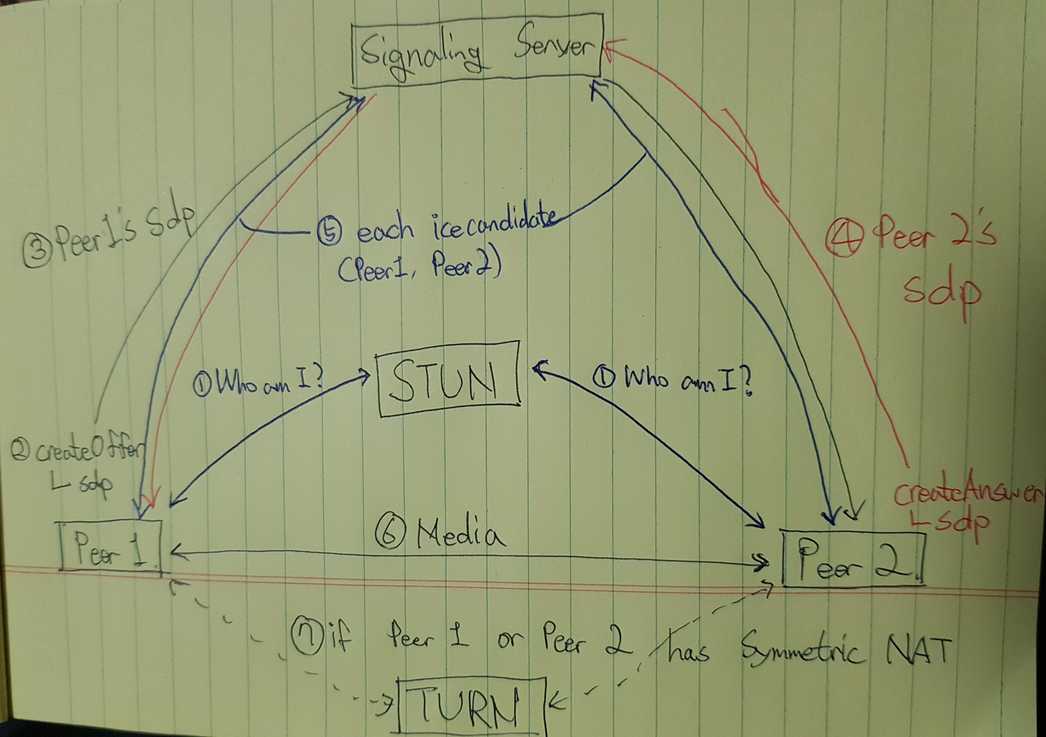 Signaling Server
③Peer1's sdp
⑤ each icecandidate
(Peer1, Peer2)
④ Peer 2's
sdp
①Who am I?
STUN
① Who am I?
②createOffer
└ sdp
createAnswer
└ sdp
Peer 1
⑥ Media
Peer 2
⑦if Peer 1 or Peer 2 has Symmetric NAT
TURN